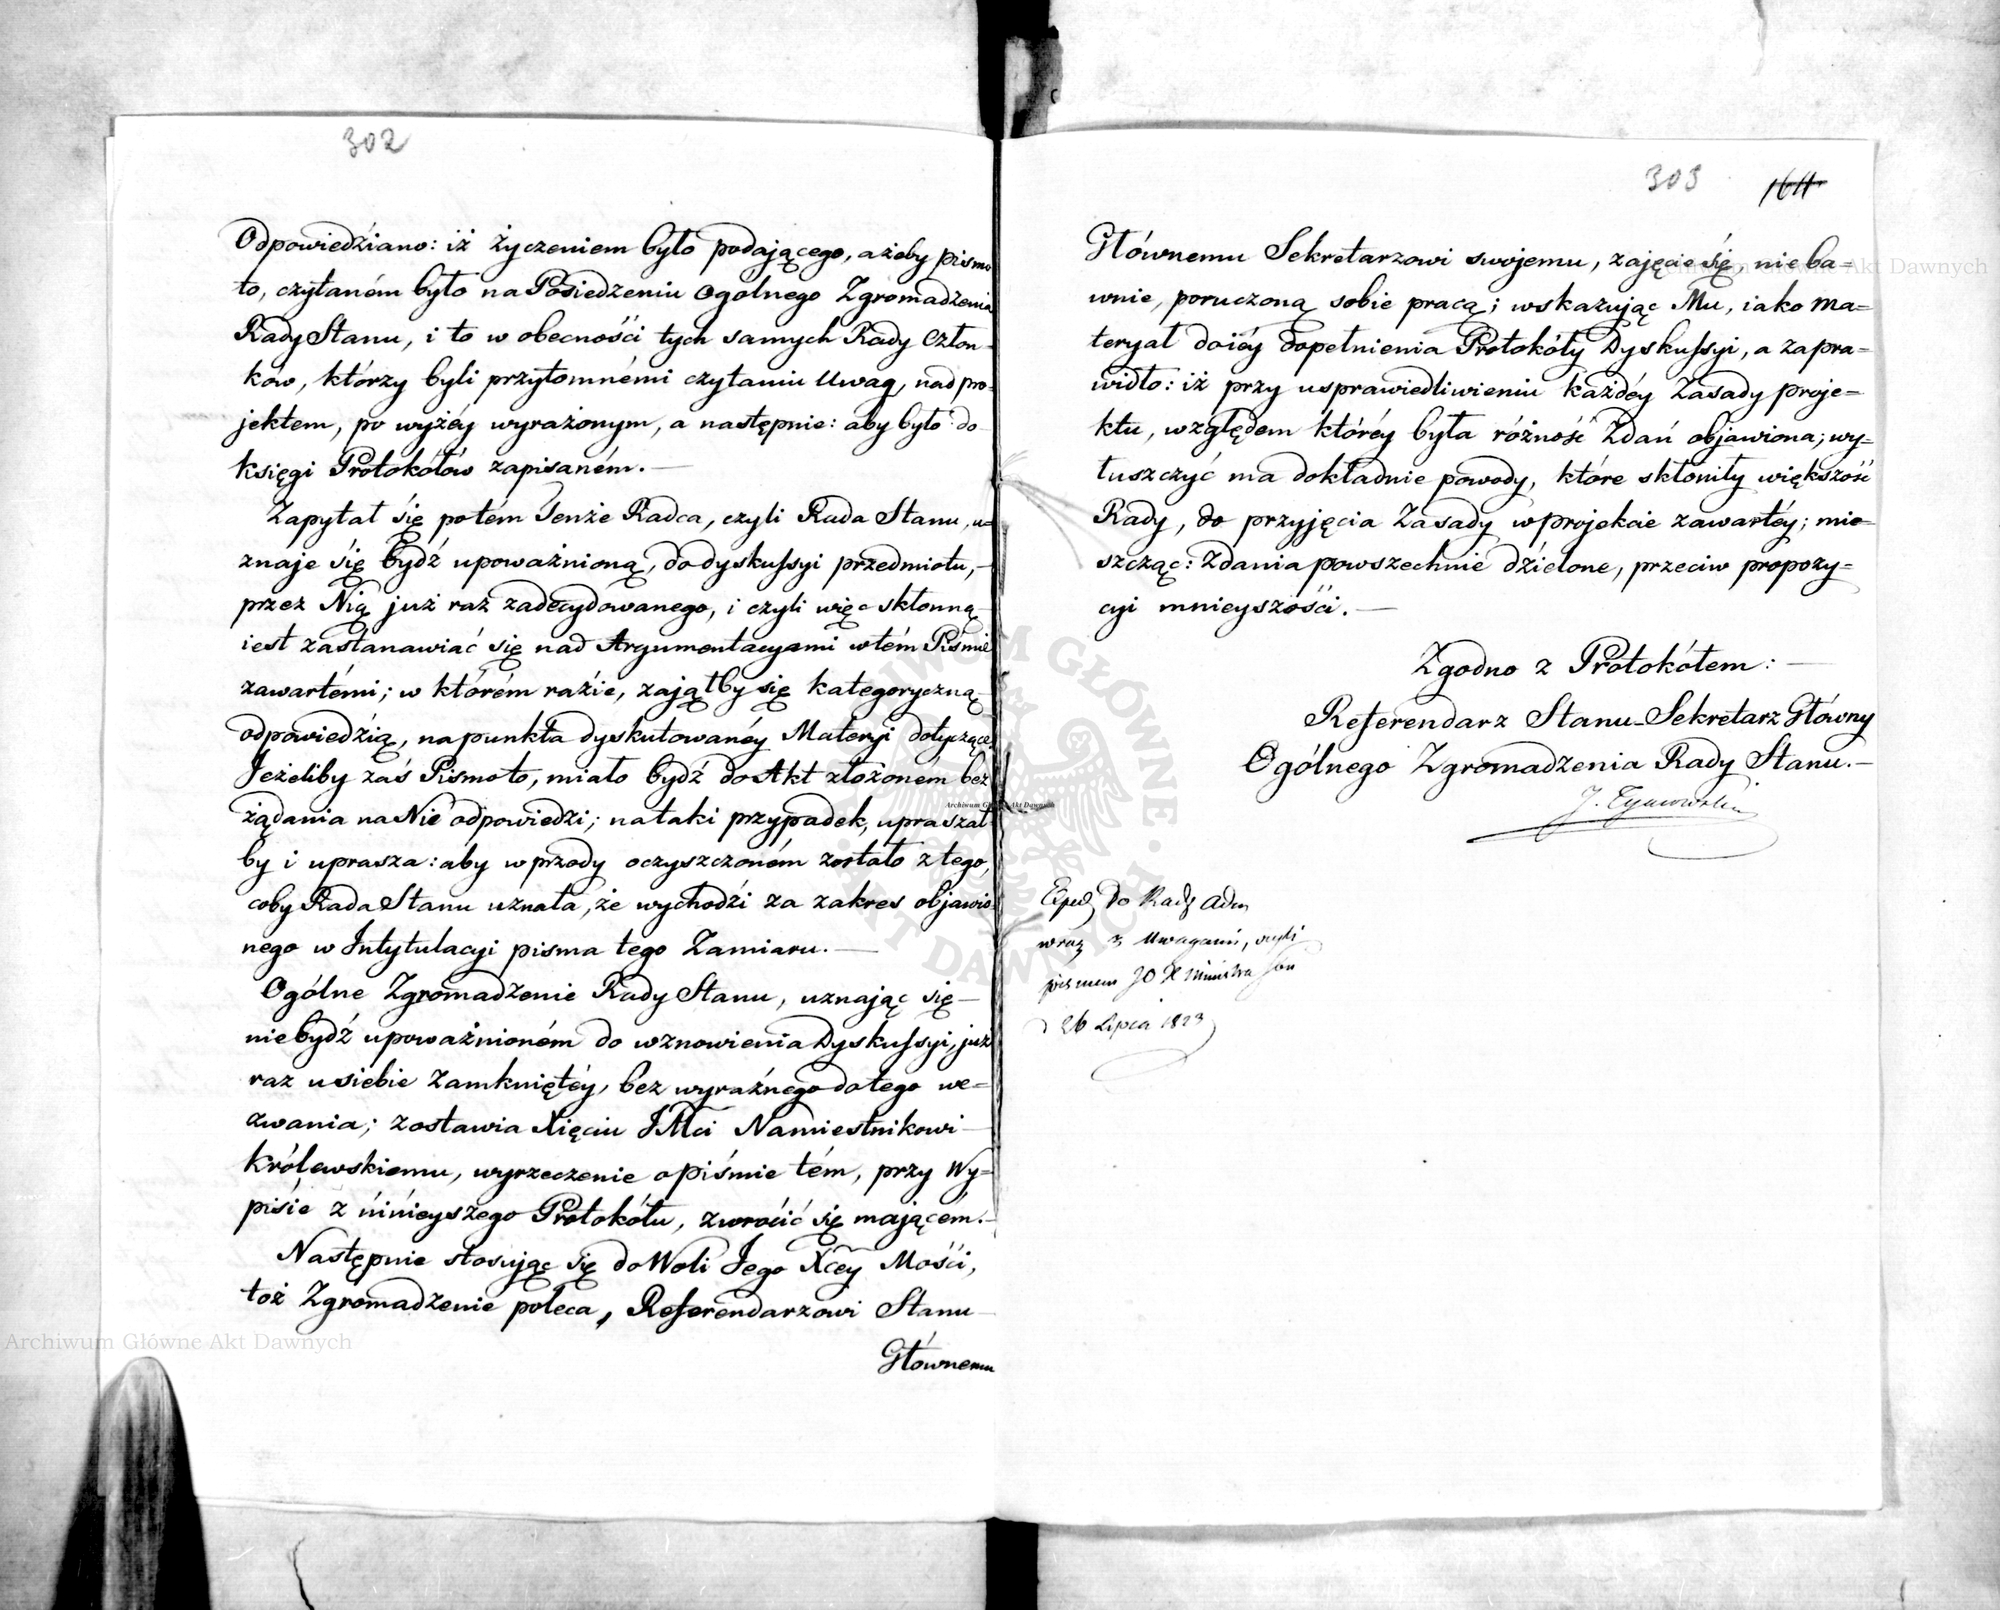 302
Odpowiedziano: iż życzeniem było podającego, ażeby pismo
to, czytaném było na Posiedzeniu Ogólnego Zgromadzenia
Rady Stanu, i to w obecności tych samych Rady Człon-
ków, którzy byli przytomnémi czytaniu Uwag, nad pro-
jektem, po wyżéy wyrażonym, a następnie: aby było do
księgi Protokółów zapisaném. —
Zapytał się potém Tenże Radca, czyli Rada Stanu, u-
znaje się bydź upoważnioną, do dyskussyi przedmiotu, —
przez Nią już raz zadecydowanego, i czyli więc skłonną
iest zastanawiać się nad Argumentacyami w tém Piśmie
zawartémi; w którém raźie, zająłby się kategoryczną
odpowiedzią, na punkta dyskutowanéy Materyi dotyczące.
Jeżeliby zaś Pismo to, miało bydź do Akt złożoném bez
żądania na Nie odpowiedzi; na taki przypadek, upraszał
by i uprasza: aby wprzódy oczyszczoném zostało z tego,
coby Rada Stanu uznała, że wychodzi za zakres objawio-
nego w Intytulacyi pisma tego Zamiaru. —
Ogólne Zgromadzenie Rady Stanu, uznając się —
nie bydź upoważnioném do wznowienia Dyskussyi, już
raz u siebie zamkniętéy, bez wyraźnego do tego we-
zwania; zostawia Xięciu JMci Namiestnikowi —
Królewskiemu, wyrzeczenie o piśmie tém, przy Wy-
piśie z ninieyszego Protokółu, zwrócić się mającém. —
Następnie stosując się do Woli Jego Xcey Mości,
toż Zgromadzenie poleca, Referendarzowi Stanu —
Głównemu
303 164
Głównemu Sekretarzowi swojemu, zajęcie się, nieba-
wnie, poruczoną sobie pracą; wskazując Mu, iako ma-
teryał do iéy dopełnienia Protokóły Dyskussyi, a za pra-
widło: iż przy usprawiedliwieniu każdéy Zasady proje-
ktu, względem któréy była różność Zdań objawiona; wy-
łuszczyć ma dokładnie powody, które skłoniły większość
Rady, do przyjęcia Zasady w projekcie zawartéy; mie-
szcząc: Zdania powszechnie dzielone, przeciw propozy-
cyi mnieyszości. —
Zgodno z Protokółem: —
Referendarz Stanu Sekretarz Główny
Ogólnego Zgromadzenia Rady Stanu. —
J. Tymowski
Exped do Rady Adm
wraz z Uwagami, czyli
pismem JO X Ministra
d 26 Lipca 1823
Archiwum Główne Akt Dawnych
Archiwum Główne Akt Dawnych
Archiwum Główne Akt Dawnych
ARCHIWUM GŁÓWNE AKT DAWNYCH